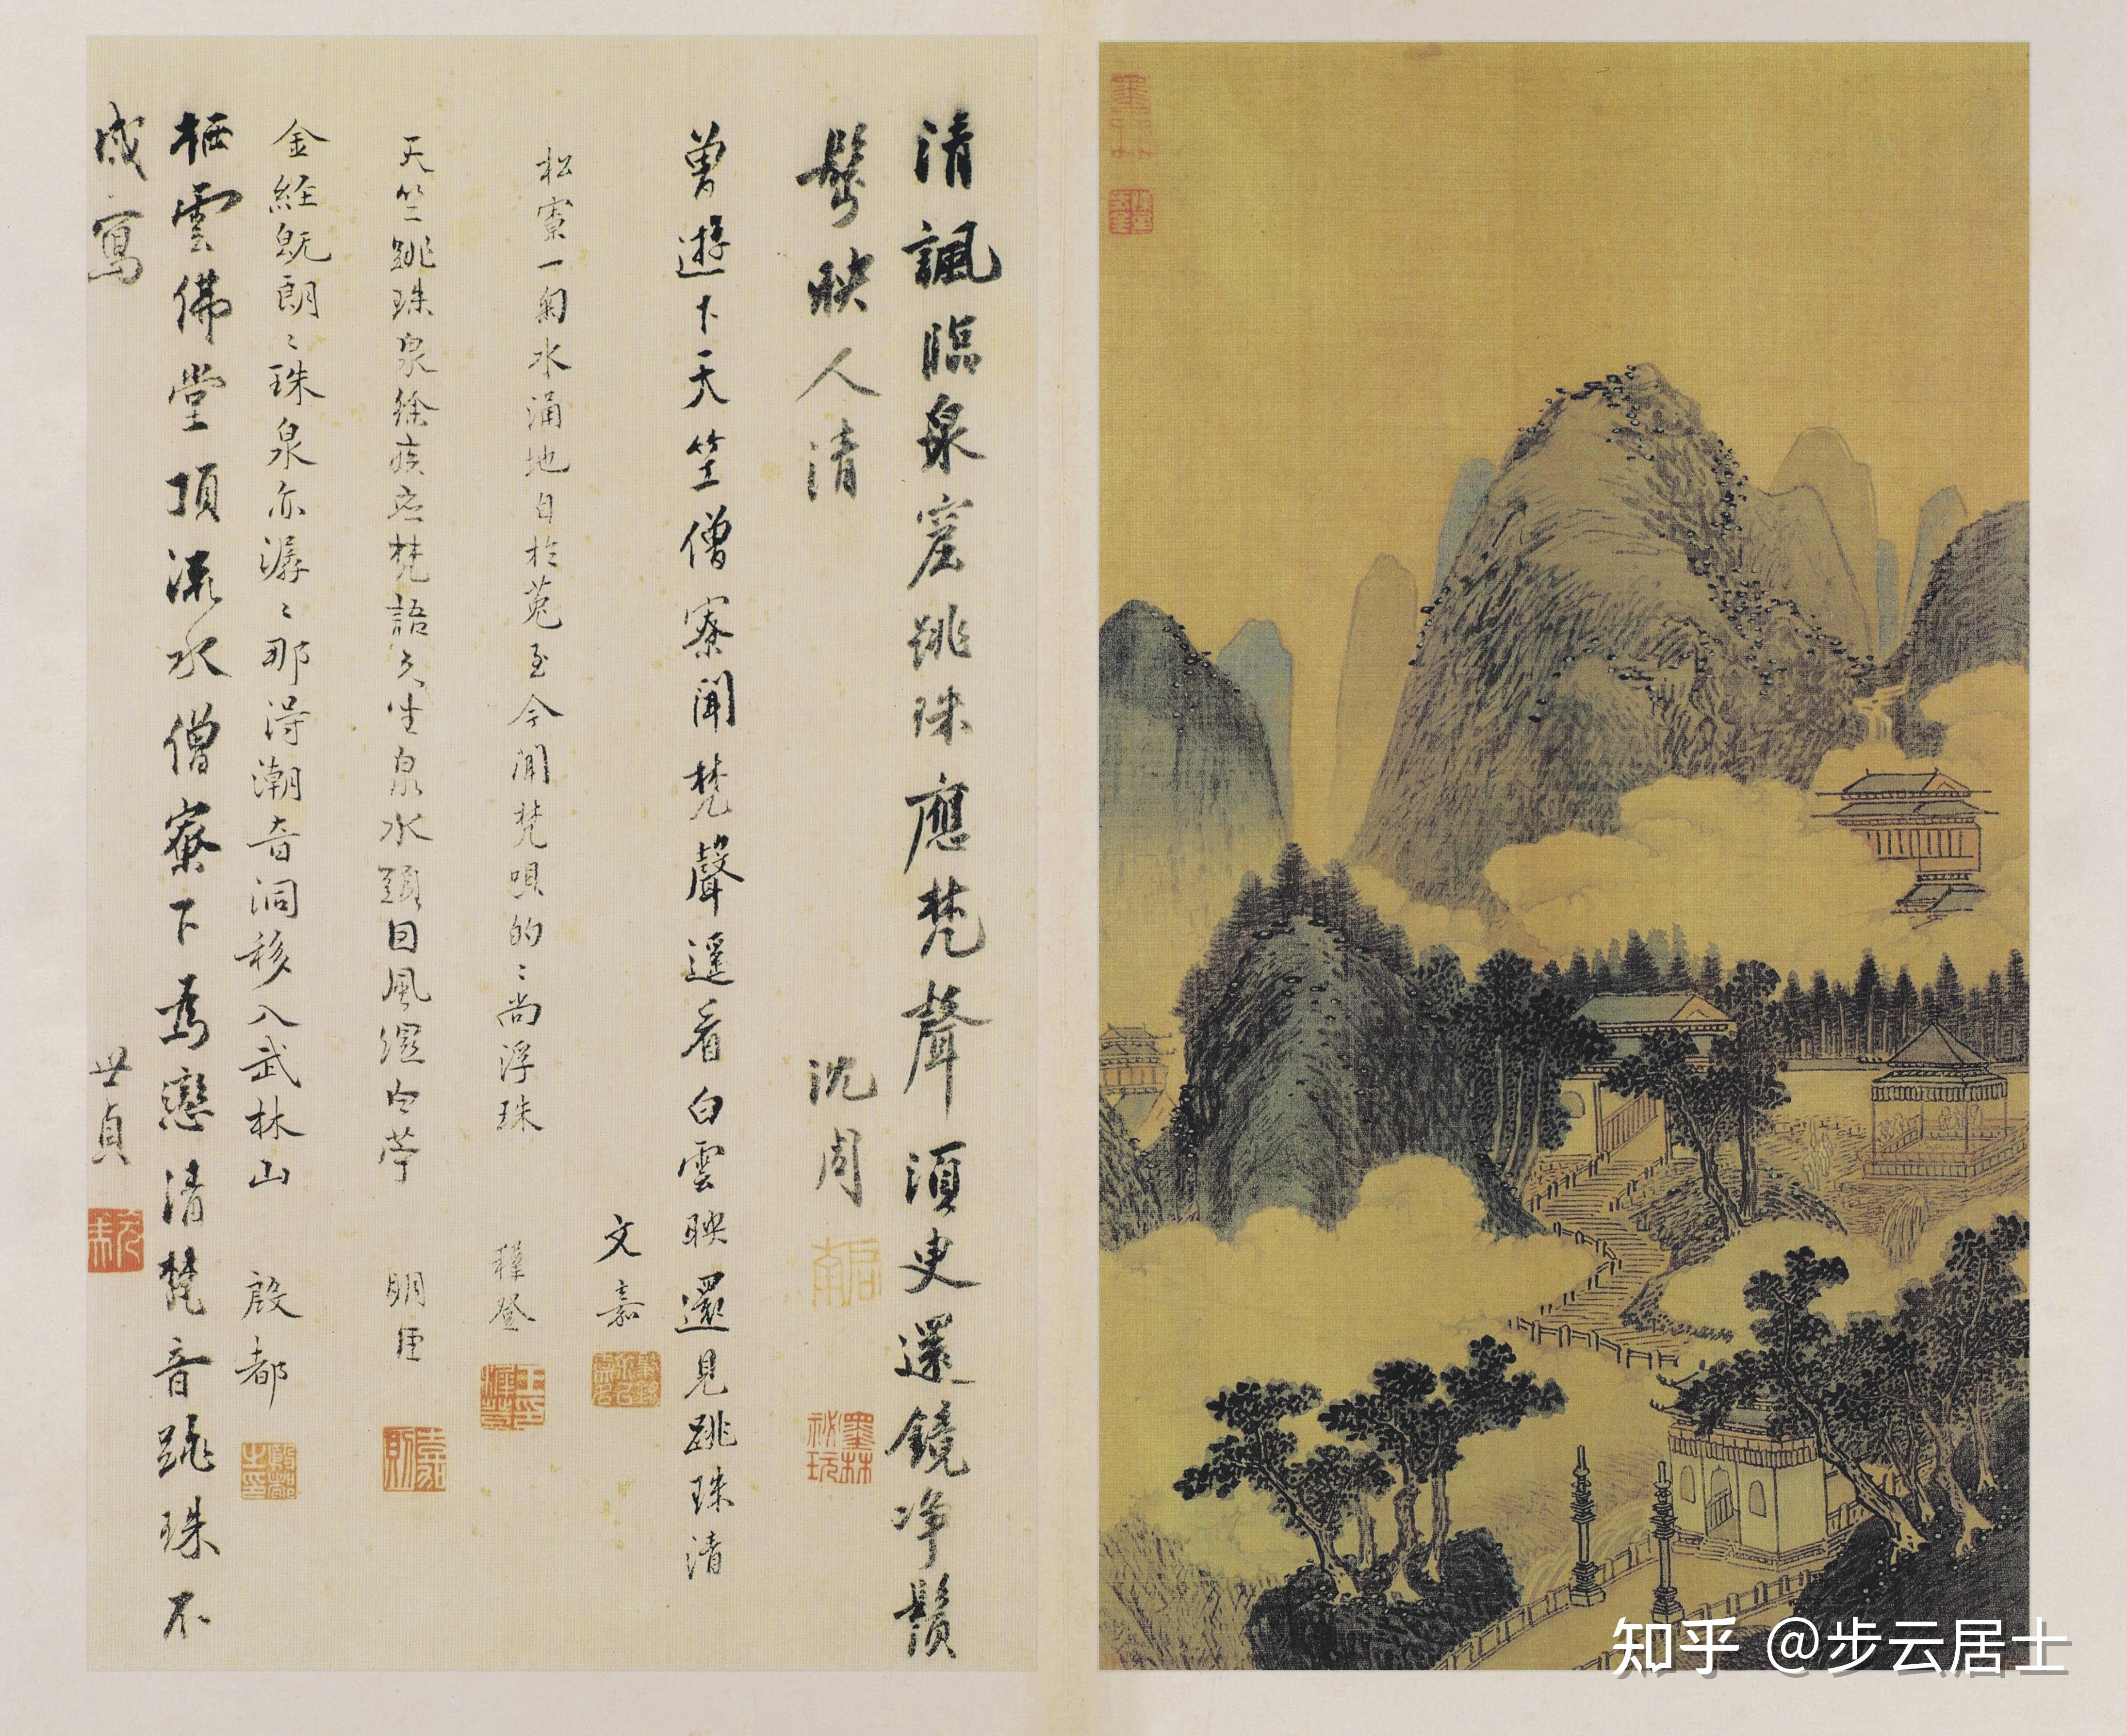 清諷臨泉窟跳珠應梵聲須臾還鏡净鬚
髩映人清 沈周
啟南
墨林祕玩
曾遊下天竺僧寮聞梵聲遥看白雲映還見跳珠清
文嘉
松寮一匊水涌地自於菟至今聞梵唄的〻尚浮珠 穉登
天竺跳珠泉徐疾應梵語久坐泉水頭回風溼白苧 明臣
金經既朗〻珠泉亦潺〻那得潮音洞移入武林山 殷都
殷都之印
栖雲佛堂頂流水僧寮下為戀清梵音跳珠不
成寫 世貞
知乎 @步云居士